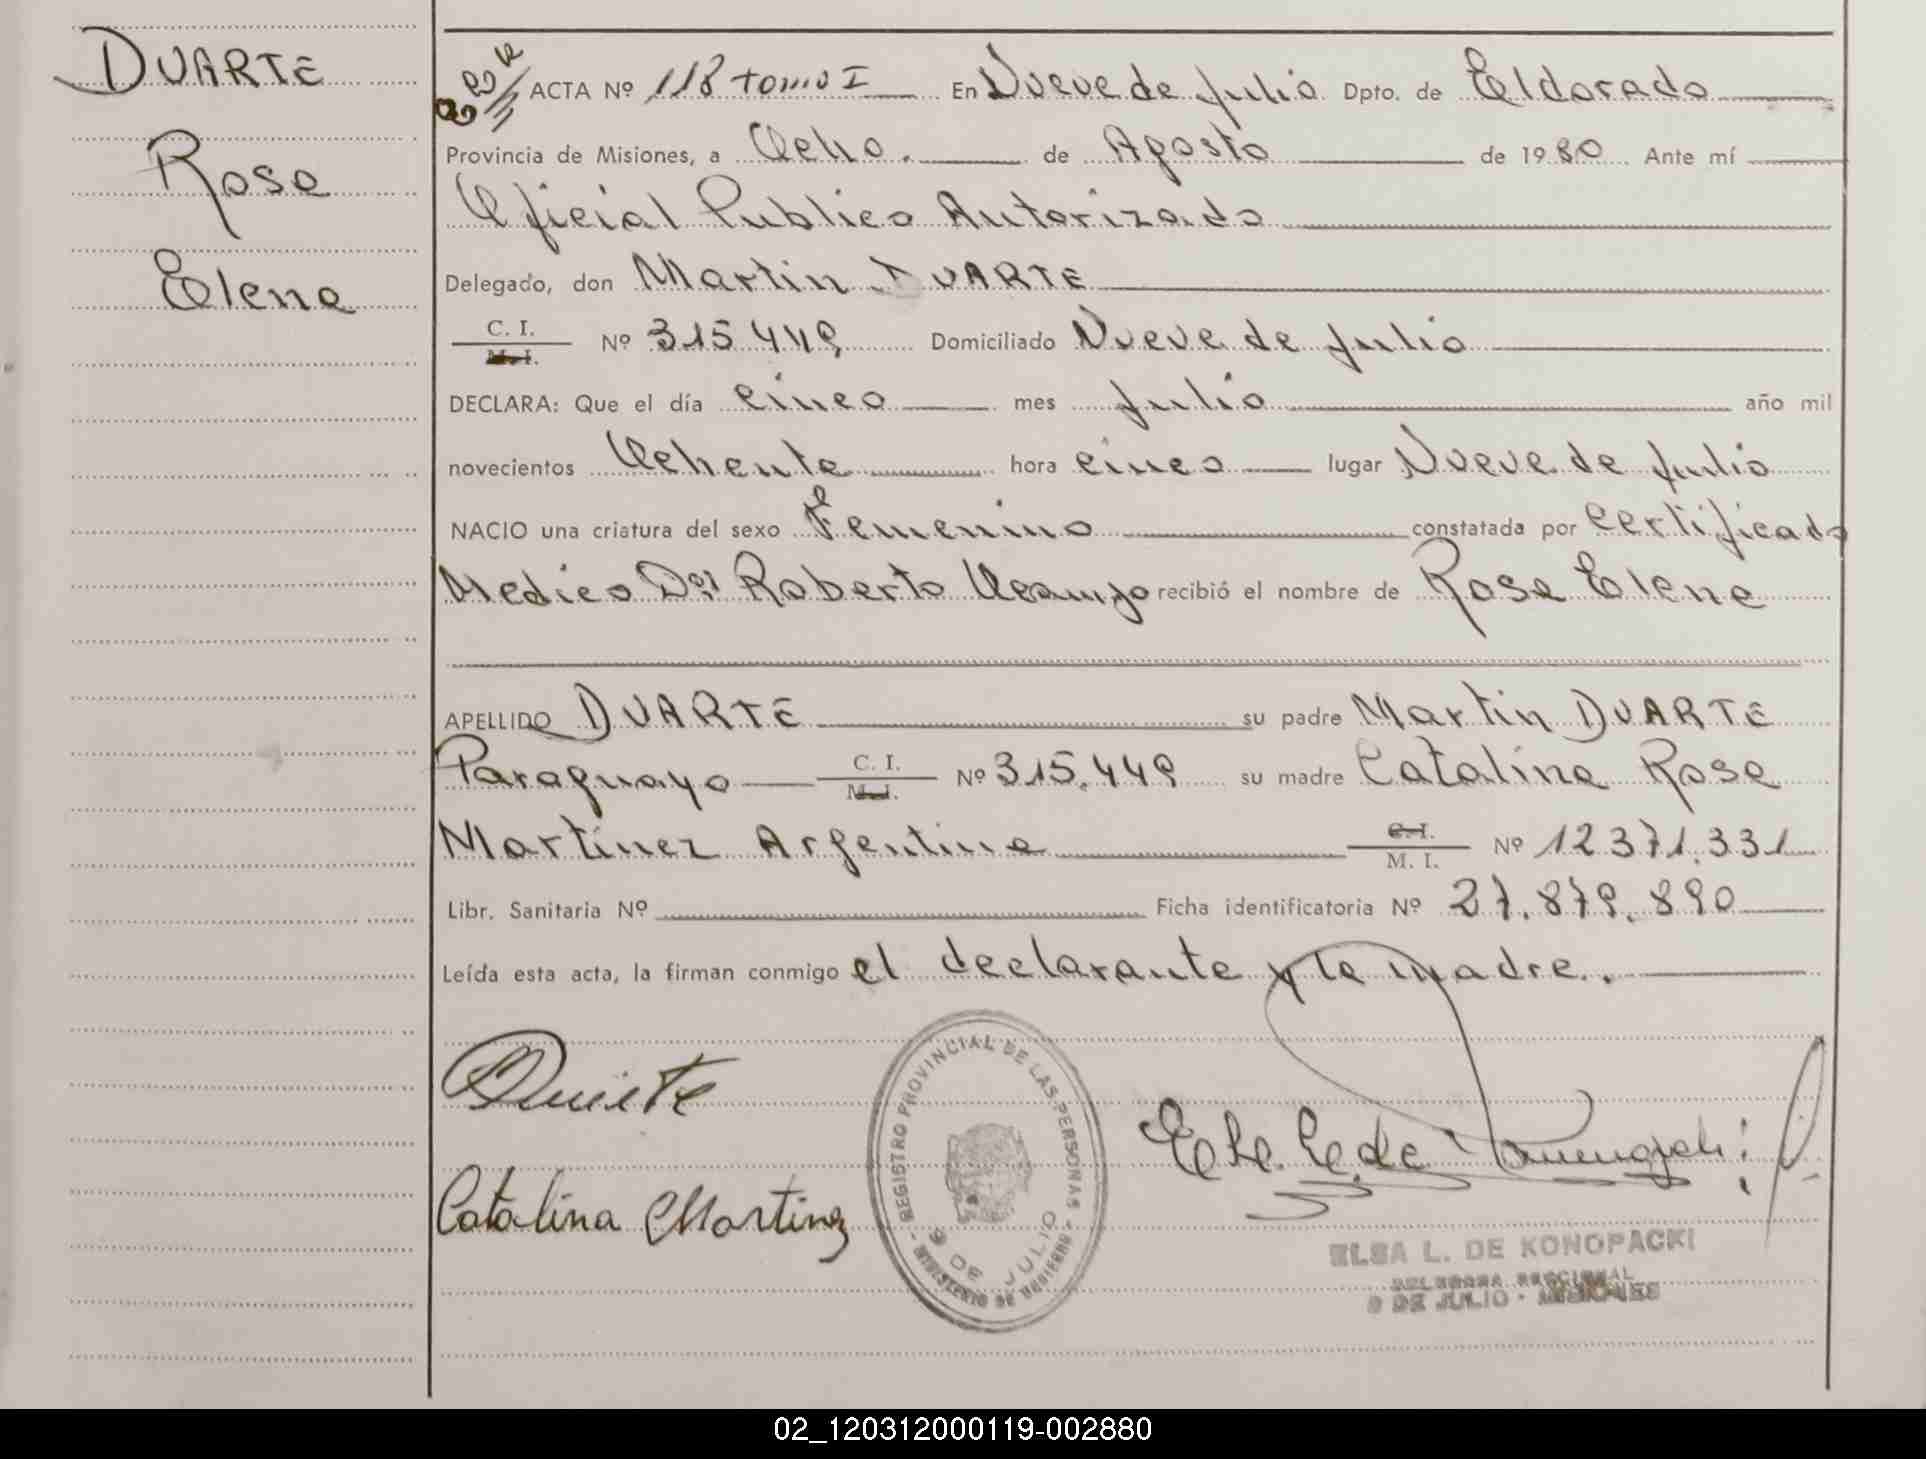 DUARTE
Rosa
Elena
ACTA Nº 118 tomo I En Nueve de Julio Dpto. de Eldorado
Provincia de Misiones, a Ocho. de Agosto de 1980 Ante mí
Oficial Publico Autorizado
Delegado, don Martin DUARTE
C. I.
M. I. Nº 315.449 Domiciliado Nueve de Julio
DECLARA: Que el día cinco mes Julio año mil
novecientos Ochenta hora cinco lugar Nueve de Julio
NACIO una criatura del sexo Femenino constatada por certificado
Medico Dor Roberto recibió el nombre de Rosa Elena
APELLIDO DUARTE su padre Martin DUARTE
Paraguayo C. I. Nº 315.449 su madre Catalina Rosa
M. I.
Martinez Argentina C. I. Nº 12.371.331
M. I.
Libr. Sanitaria Nº Ficha identificatoria Nº 27.879.890
Leída esta acta, la firman conmigo el declarante y la madre.
Duarte
Catalina Martinez
REGISTRO PROVINCIAL DE LAS PERSONAS - MINISTERIO DE GOBIERNO -
9 DE JULIO
ELSA L. DE KONOPACKI
DELEGADA SECCIONAL
9 DE JULIO - MISIONES
02_120312000119-002880